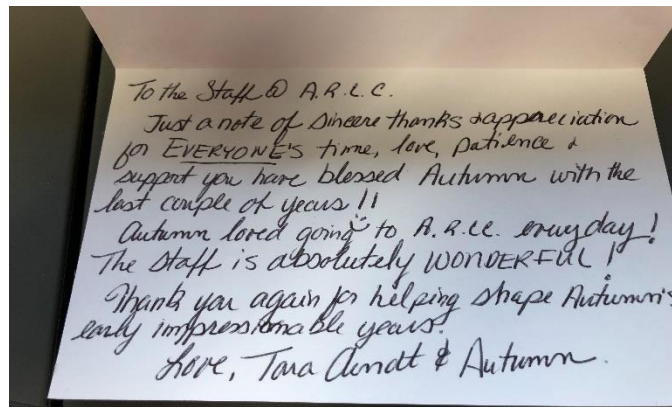 To the Staff @ A.R.L.C.
Just a note of sincere thanks & appreciation
for EVERYONE'S time, love, patience &
support you have blessed Autumn with the
last couple of years!!
Autumn loved going to A.R.LC. everyday!
The staff is absolutely WONDERFUL!
Thank you again for helping shape Autumn's
early impressionable years.
Love, Tara Arndt & Autumn.